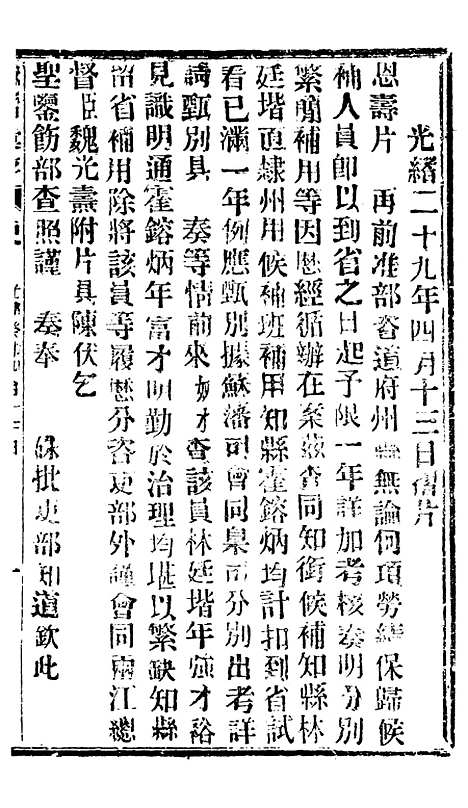 光緒二十九年四月十三日 片
恩壽片 再前准部咨道府州縣無論何項勞績保歸候
補人員卽以到省之日起予限一年詳加考核奏明分別
繁簡補用等因歷經循辦在案茲查同知銜候補知縣林
廷堦直隸州用候補班補用知縣霍鎔炳均計扣到省試
看已滿一年例應甄別據蘇藩司會同臬司分別出考詳
請甄別具 奏等情前來奴才查該員林廷堦年 才裕
見識明通霍鎔炳年富才明勤於治理均堪以繁缺知縣
留省補用除將該員等履歷分咨吏部外謹會同兩江總
督臣魏光燾附片具陳伏乞
聖鑒飭部查照謹 奏奉 硃批吏部知道欽此